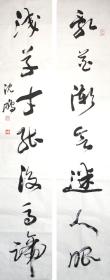 乱花渐欲迷人眼
浅草才能没马蹄
沈鹏